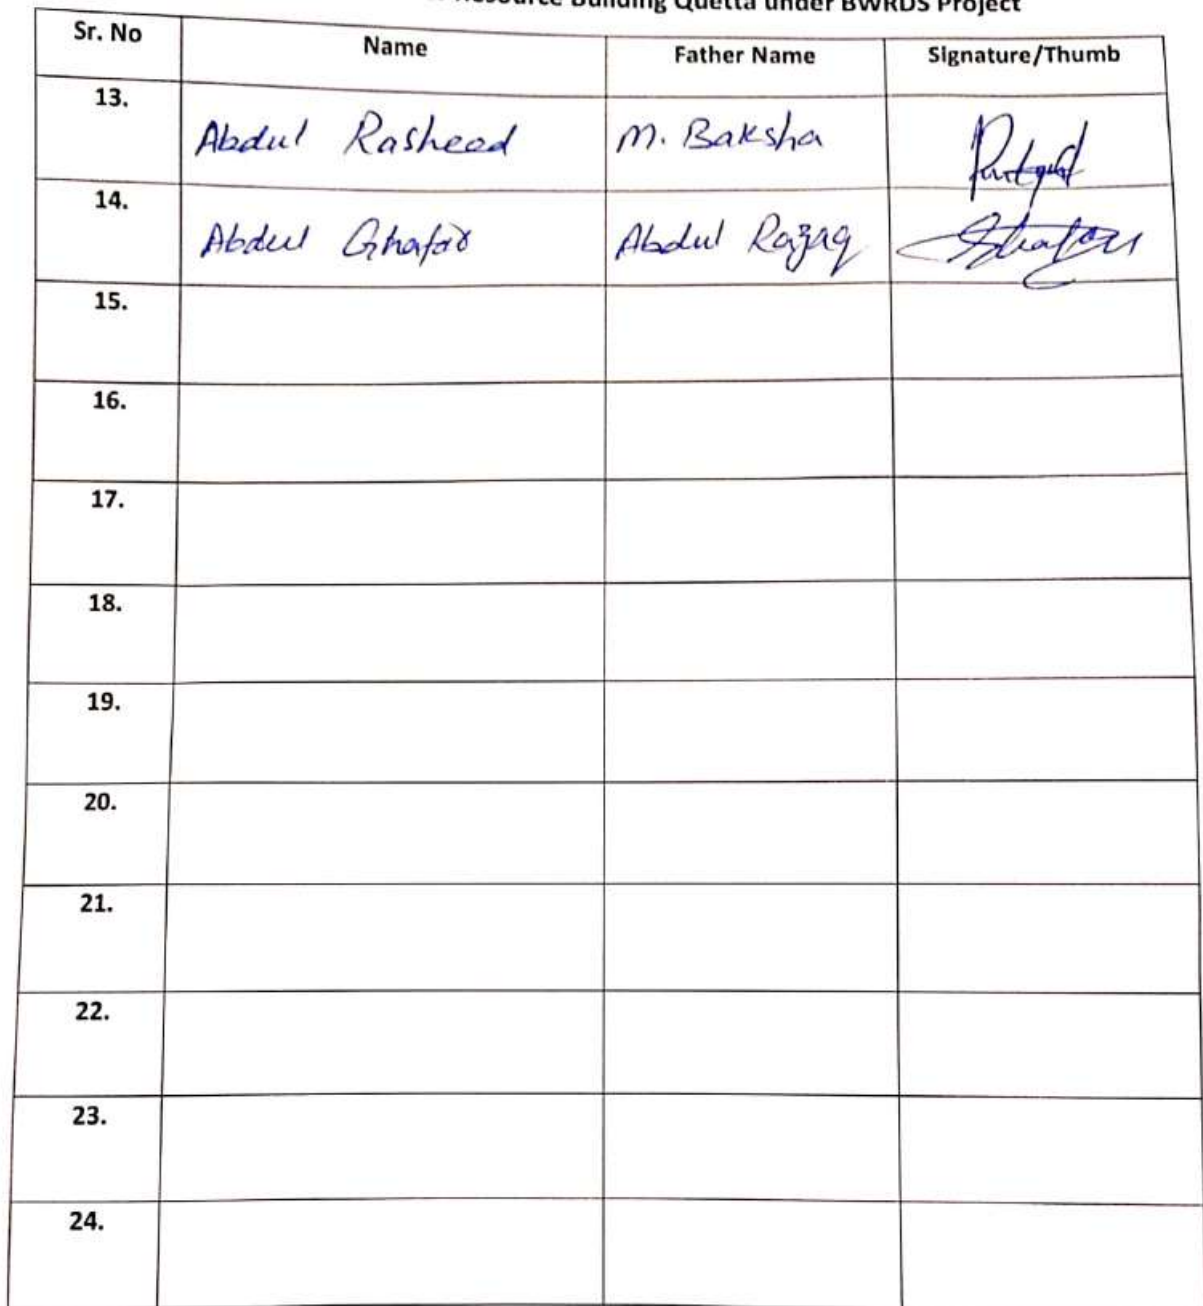 Resource Building Quetta under BWRDS Project
Sr. No Name Father Name Signature/Thumb
13. Abdul Rasheed M. Baksha
14. Abdul Ghafar Abdul Razaq
15.
16.
17.
18.
19.
20.
21.
22.
23.
24.